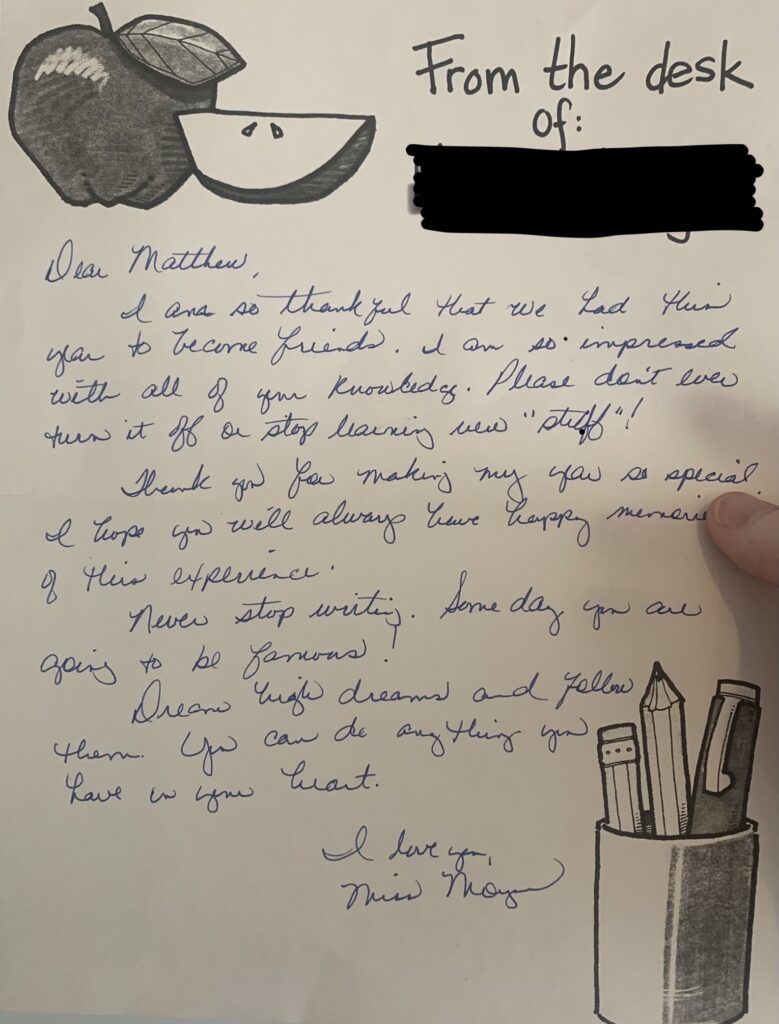 From the desk
of:
Dear Matthew,
I am so thankful that we had this
year to become friends. I am so impressed
with all of your knowledge. Please don't ever
turn it off or stop learning new "stuff"!
Thank you for making my year so special.
I hope you will always have happy memorie
of this experience.
Never stop writing. Some day you are
going to be famous!
Dream high dreams and follow
them. You can do anything you
have in your heart.
I love you,
Miss